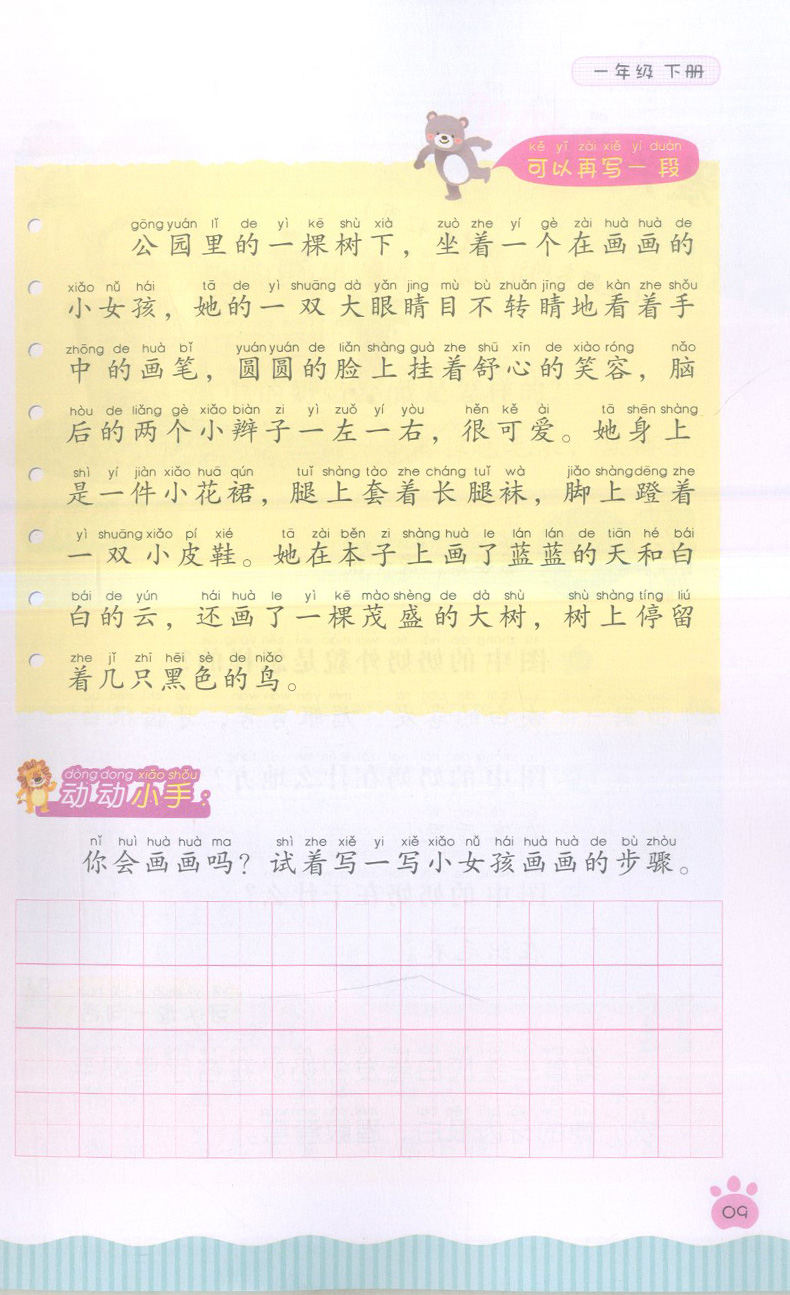 一年级 下册
kě yǐ zài xiě yí duàn
可以再写一段
gōng yuán lǐ de yì kē shù xià zuò zhe yí gè zài huà huà de
公园里的一棵树下，坐着一个在画画的
xiǎo nǚ hái tā de yì shuāng dà yǎn jing mù bù zhuǎn jīng de kàn zhe shǒu
小女孩，她的一双大眼睛目不转睛地看着手
zhōng de huà bǐ yuán yuán de liǎn shàng guà zhe shū xīn de xiào róng nǎo
中的画笔，圆圆的脸上挂着舒心的笑容，脑
hòu de liǎng gè xiǎo biàn zi yì zuǒ yí yòu hěn kě ài tā shēn shàng
后的两个小辫子一左一右，很可爱。她身上
shì yí jiàn xiǎo huā qún tuǐ shàng tào zhe cháng tuǐ wà jiǎo shàng dēng zhe
是一件小花裙，腿上套着长腿袜，脚上蹬着
yì shuāng xiǎo pí xié tā zài běn zi shàng huà le lán lán de tiān hé bái
一双小皮鞋。她在本子上画了蓝蓝的天和白
bái de yún hái huà le yì kē mào shèng de dà shù shù shàng tíng liú
白的云，还画了一棵茂盛的大树，树上停留
zhe jǐ zhī hēi sè de niǎo
着几只黑色的鸟。
dòng dong xiǎo shǒu
动动小手
nǐ huì huà huà ma shì zhe xiě yi xiě xiǎo nǚ hái huà huà de bù zhòu
你会画画吗？试着写一写小女孩画画的步骤。
09